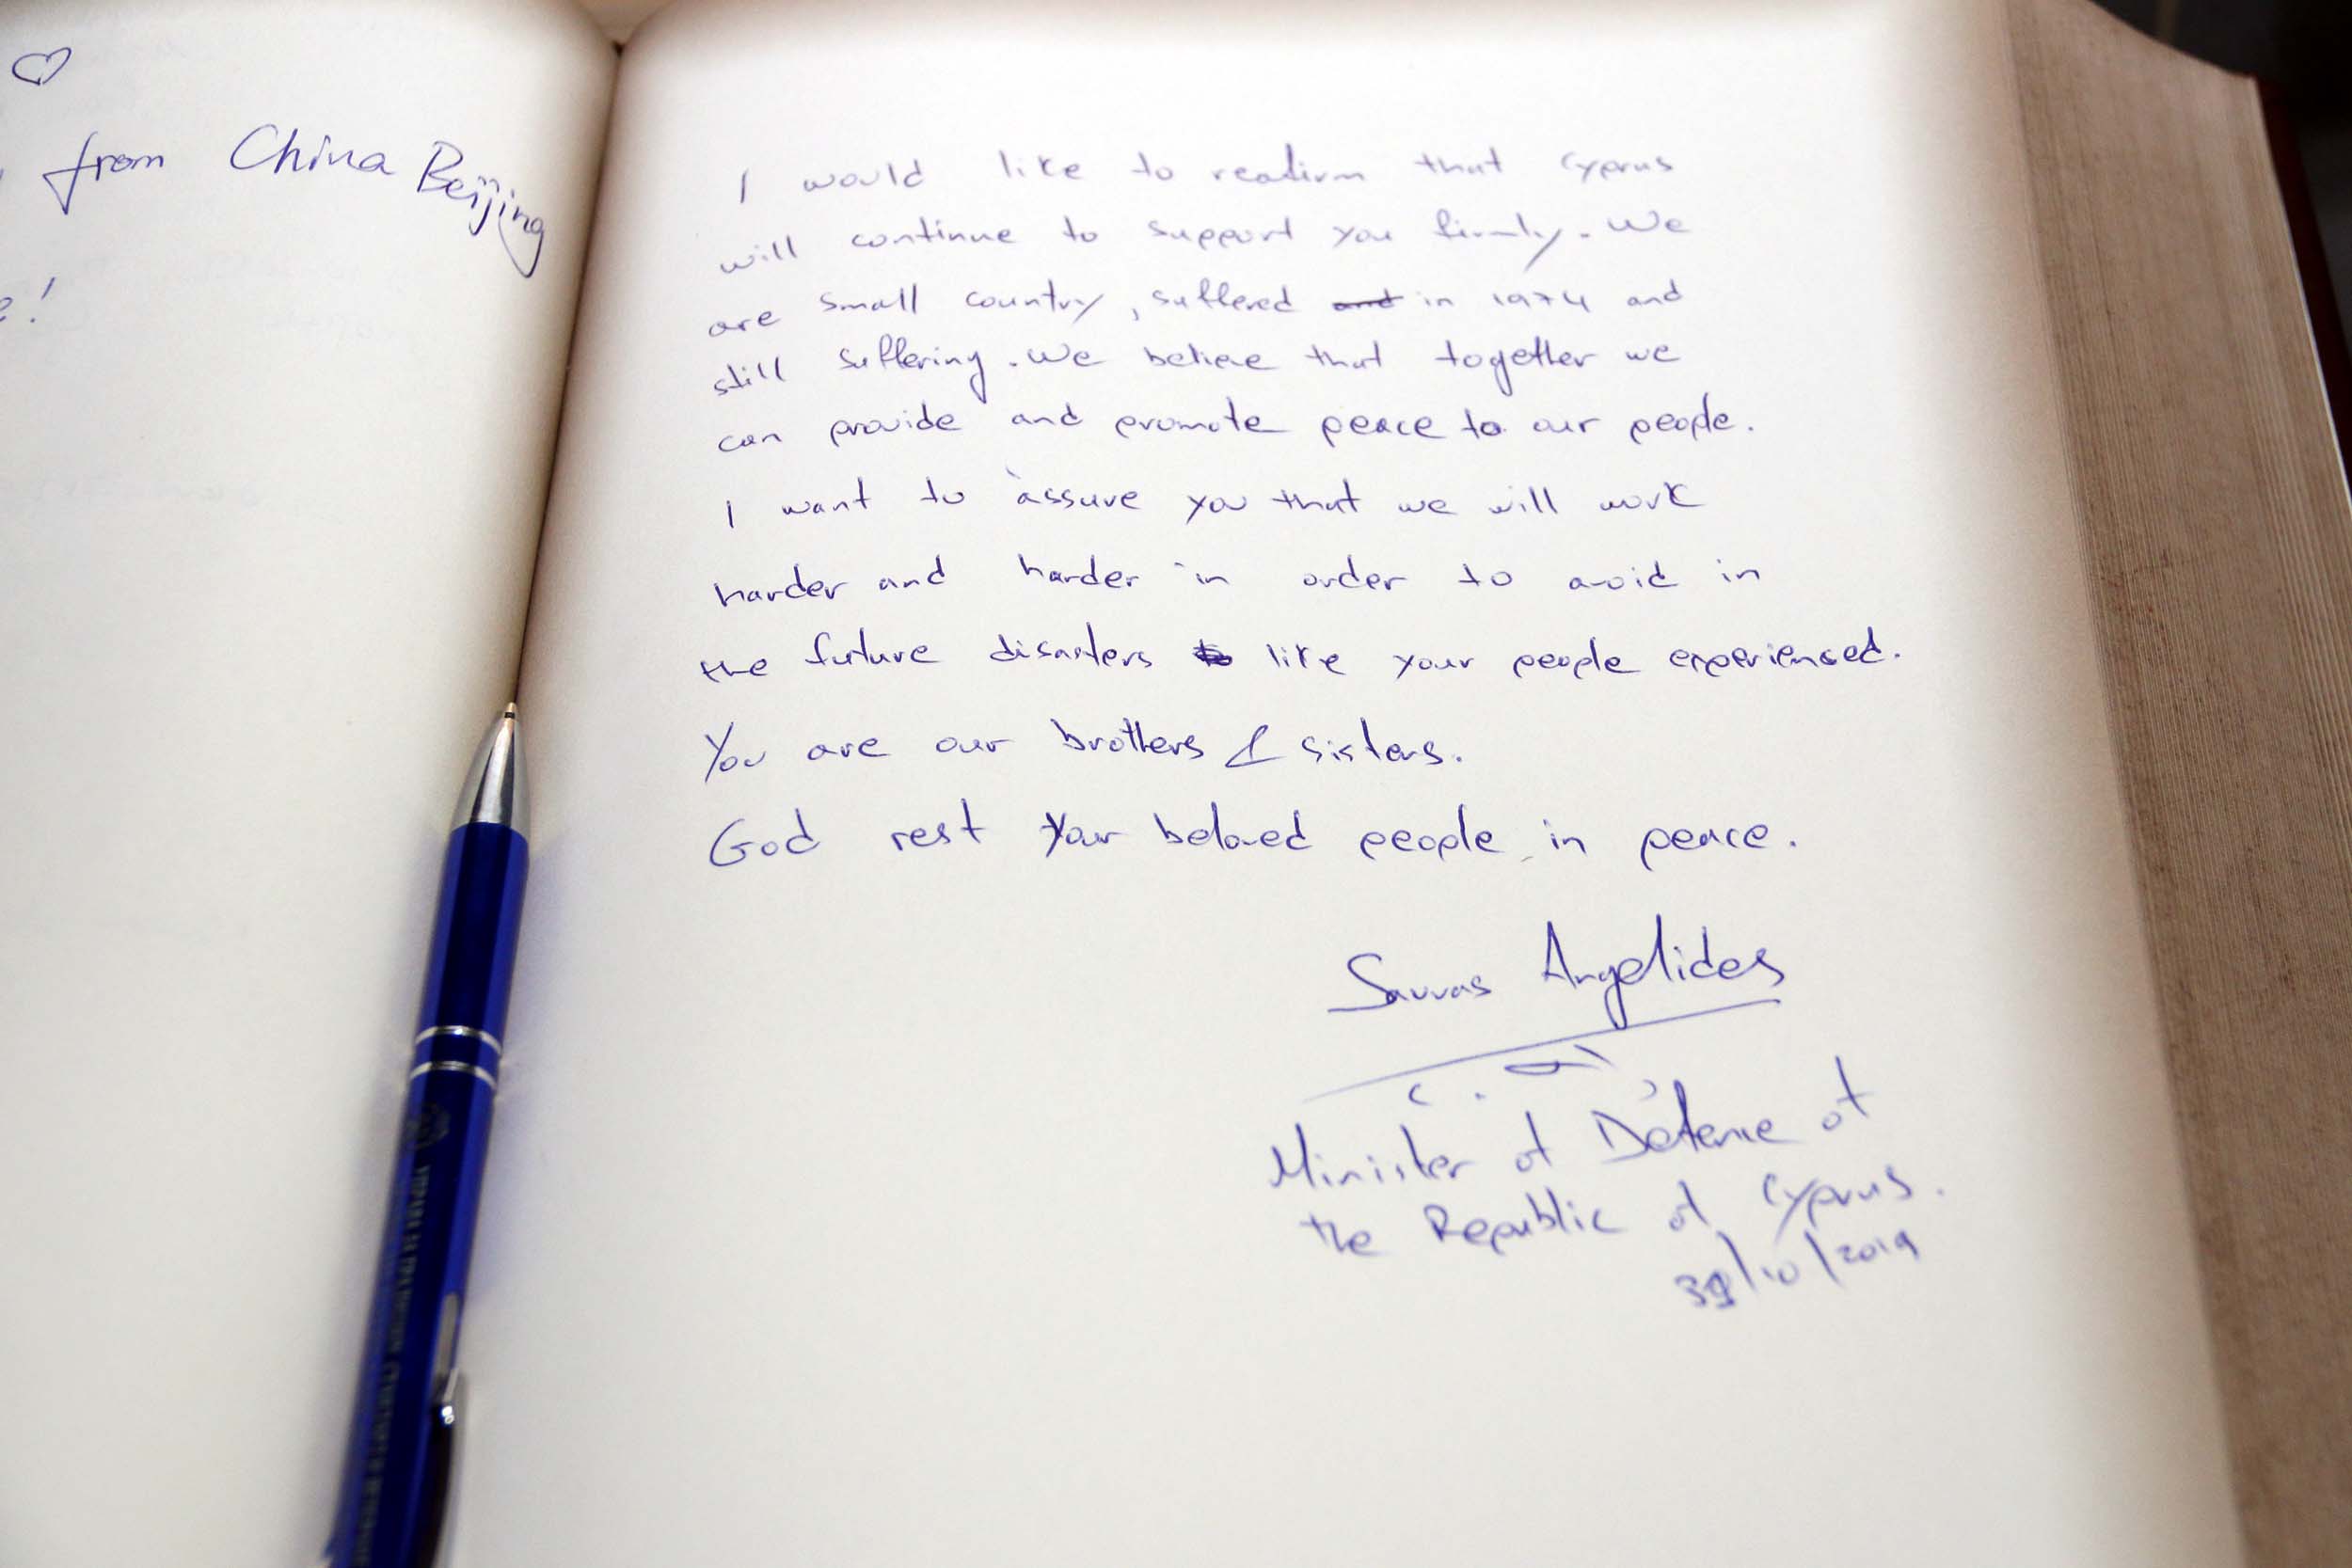 ♡
from China Beijing
e!
I would like to reafirm that Cyprus
will continue to support you firmly. We
are small country, suffered and in 1974 and
still suffering. We believe that together we
can provide and promote peace to our people.
I want to assure you that we will work
harder and harder in order to avoid in
the future disasters to like your people experiensed.
You are our brothers & sisters.
God rest your beloved people in peace.
Savvas Angelides
Minister of Defence of
the Republic of Cyprus.
/10/2019